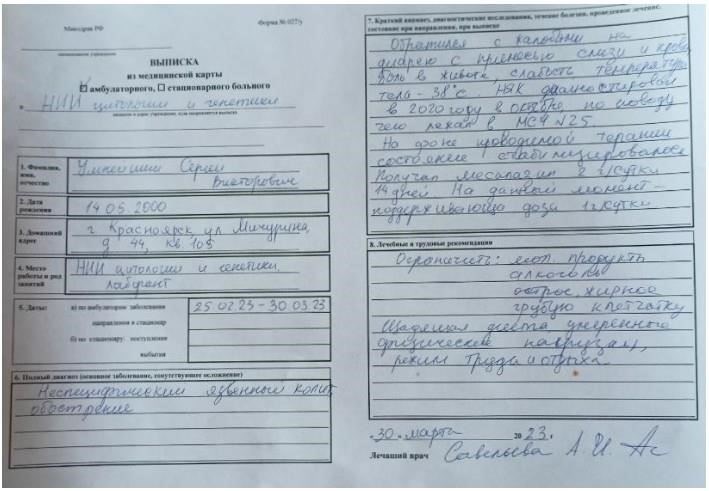 Минздрав РФ
Форма № 027/у
наименование учреждения
ВЫПИСКА
из медицинской карты
☑ амбулаторного, ☐ стационарного больного
в НИИ цитологии и генетики
название и адрес учреждения, куда направляется выписка
1. Фамилия, имя, отчество
Сергей
Викторович
2. Дата рождения
14 05. 2000
3. Домашний адрес
г Красноярск, ул Мичурина,
д 44, кв 105
4. Место работы и род занятий
НИИ цитологии и генетики,
лаборант
5. Даты: а) по амбулаторно заболевания
25 02. 23 – 30.03.23
направления в стационар
б) по стационару: поступления
выбытия
6. Полный диагноз (основное заболевание, сопутствующее осложнение)
Неспецифический язвенный колит,
обострение
7. Краткий анамнез, диагностические исследования, течение болезни, проведенное лечение,
состояние при направлении, при выписке
Обратился с жалобами на
диарею с примесью слизи и крови
боль в животе, слабость температура
тела – 38°С. НЯК диагностирован
в 2020 году в октябре, по поводу
чего лежал в МСЧ №25.
На фоне проводимой терапии
состояние стабилизировалось
Получал месалазин 2 г/сутки
14 дней. На данный момент –
поддерживающая доза 1г/сутки
8. Лечебные и трудовые рекомендации
Ограничить: мол. продукты
алкоголь
острое, жирное
грубую клетчатку
Щадящая диета, умеренные
физические нагрузки,
режим труда и отдыха.
«30» марта 2023 г.
Лечащий врач Савельева А. И.